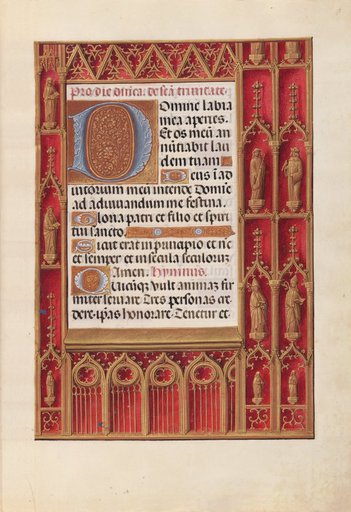 Pro die dnica: de scā trinitate.
Domine labia
mea aperies.
Et os meū an
nūtiabit lau
dem tuam
Deus ī ad
iutorium meū intende Domine
ad adiuvandum me festina.
Gloria patri et filio et spiri
tui sancto
Sicut erat in principio et nūc
et semper et in secula seculorū
Amen. Hymnus.
Quicūque vult animaʒ fir
miter servare Tres personas cre
dere: ip̄as honorare. Tenetur et